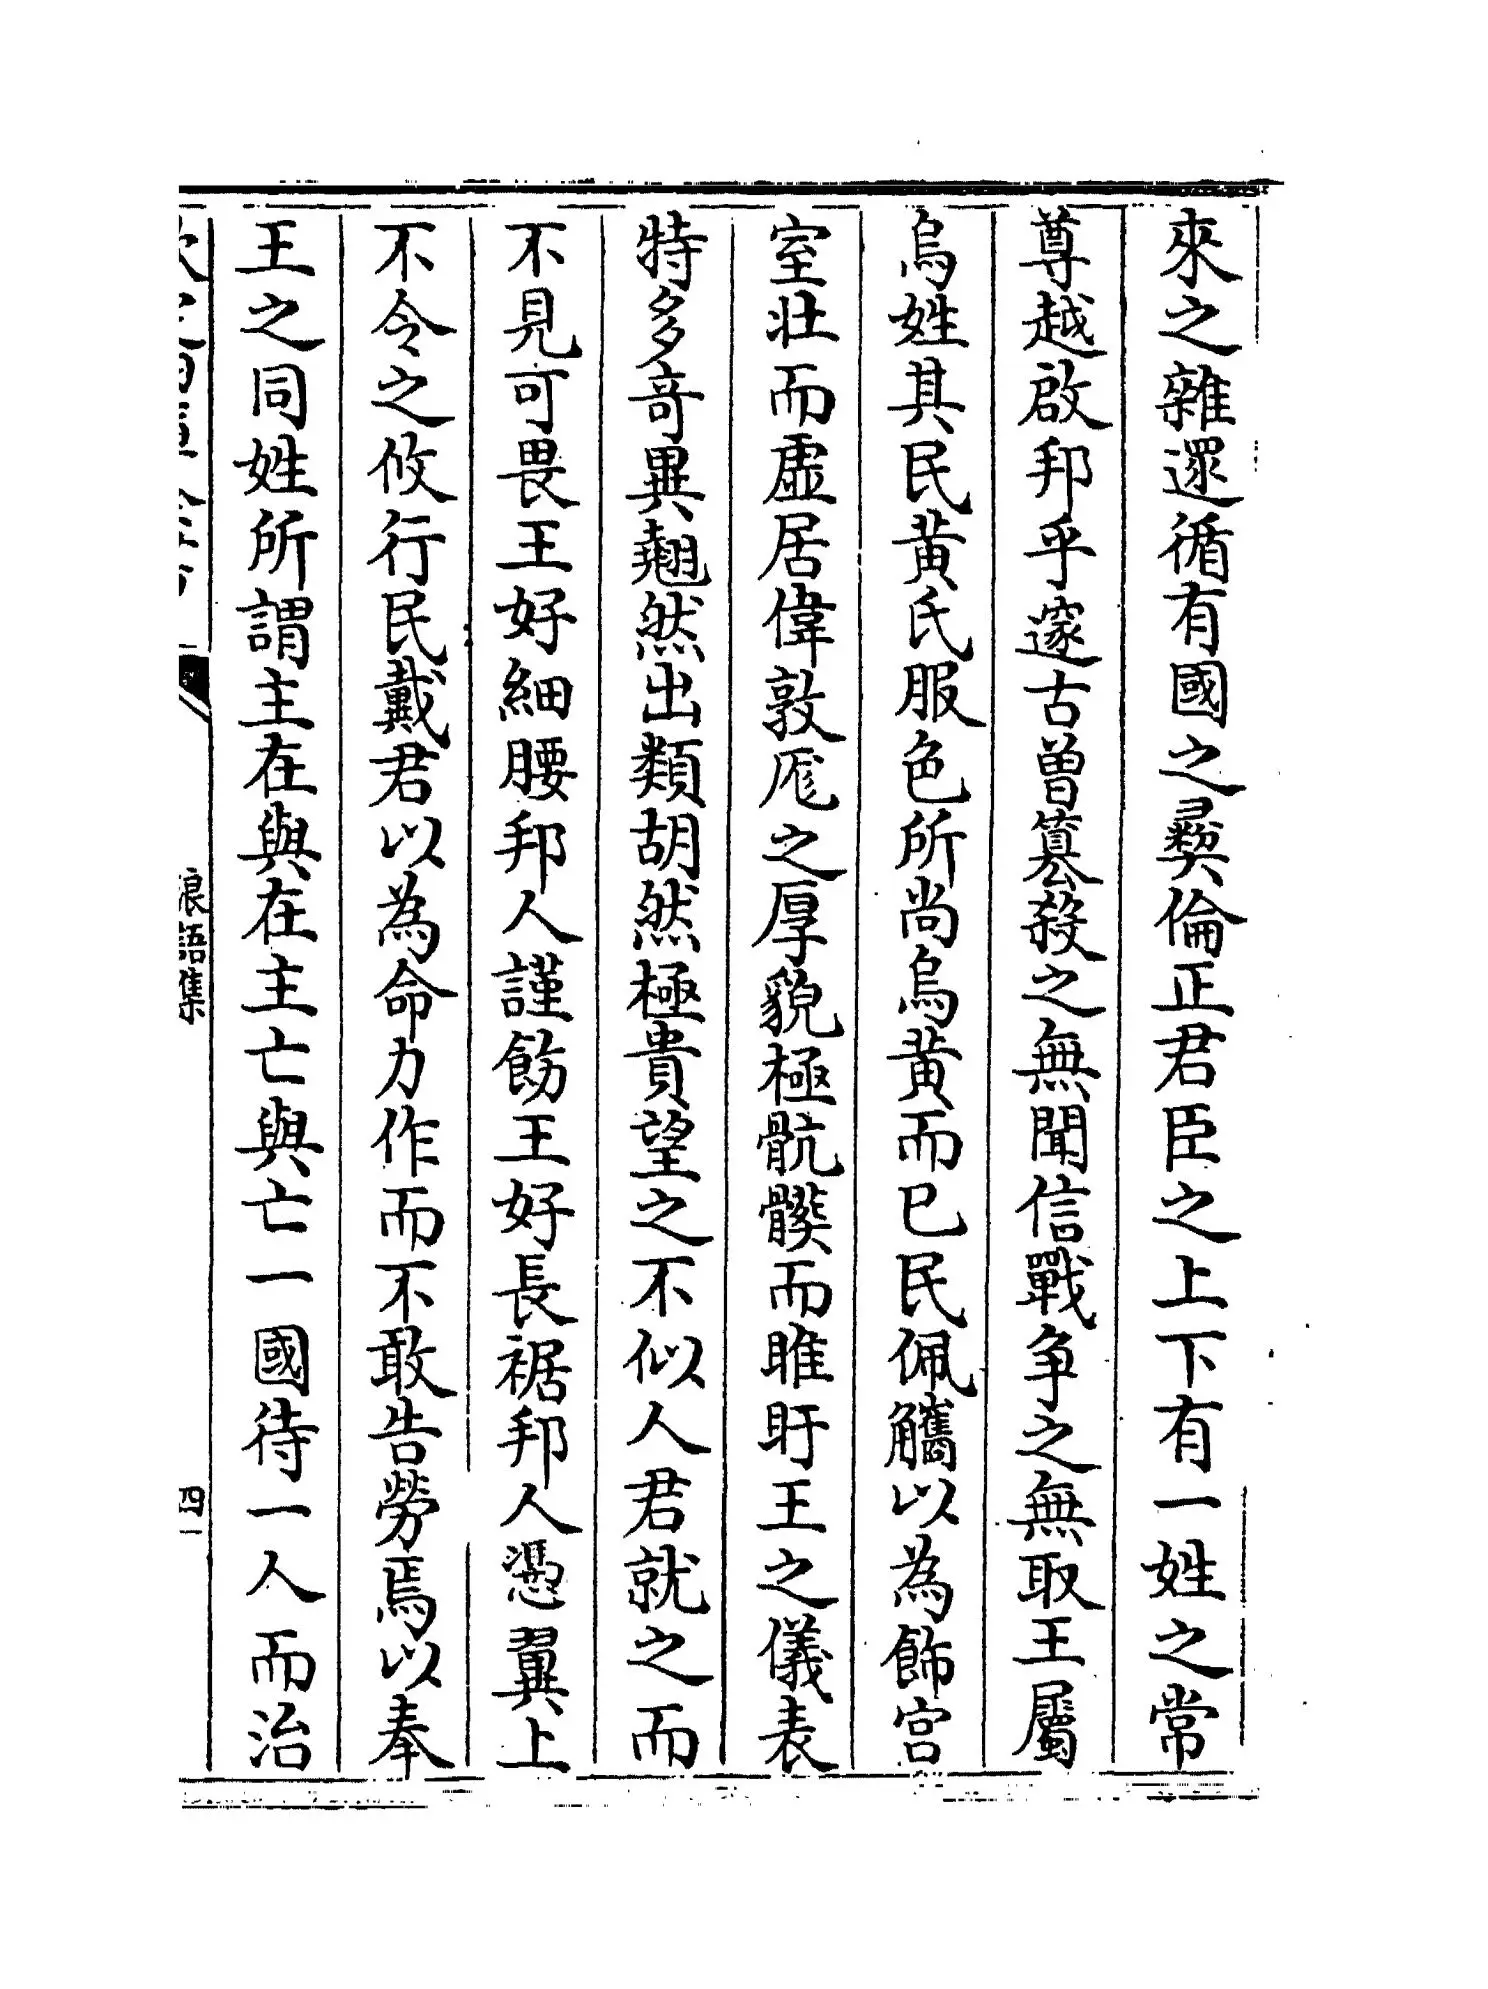 來之雜還循有國之彞倫正君臣之上下有一姓之常
尊越啟邦乎邃古曽簒殺之無聞信戰爭之無取王屬
烏姓其民黄氏服色所尚烏黄而已民佩觿以為飾宫
室壯而虚居偉敦厖之厚貌極骯髒而睢盱王之儀表
特多竒異翹然出類胡然極貴望之不似人君就之而
不見可畏王好細腰邦人謹飭王好長裾邦人憑翼上
不令之攸行民戴君以為命力作而不敢告勞焉以奉
王之同姓所謂主在與在主亡與亡一國待一人而治
浪語集
四一